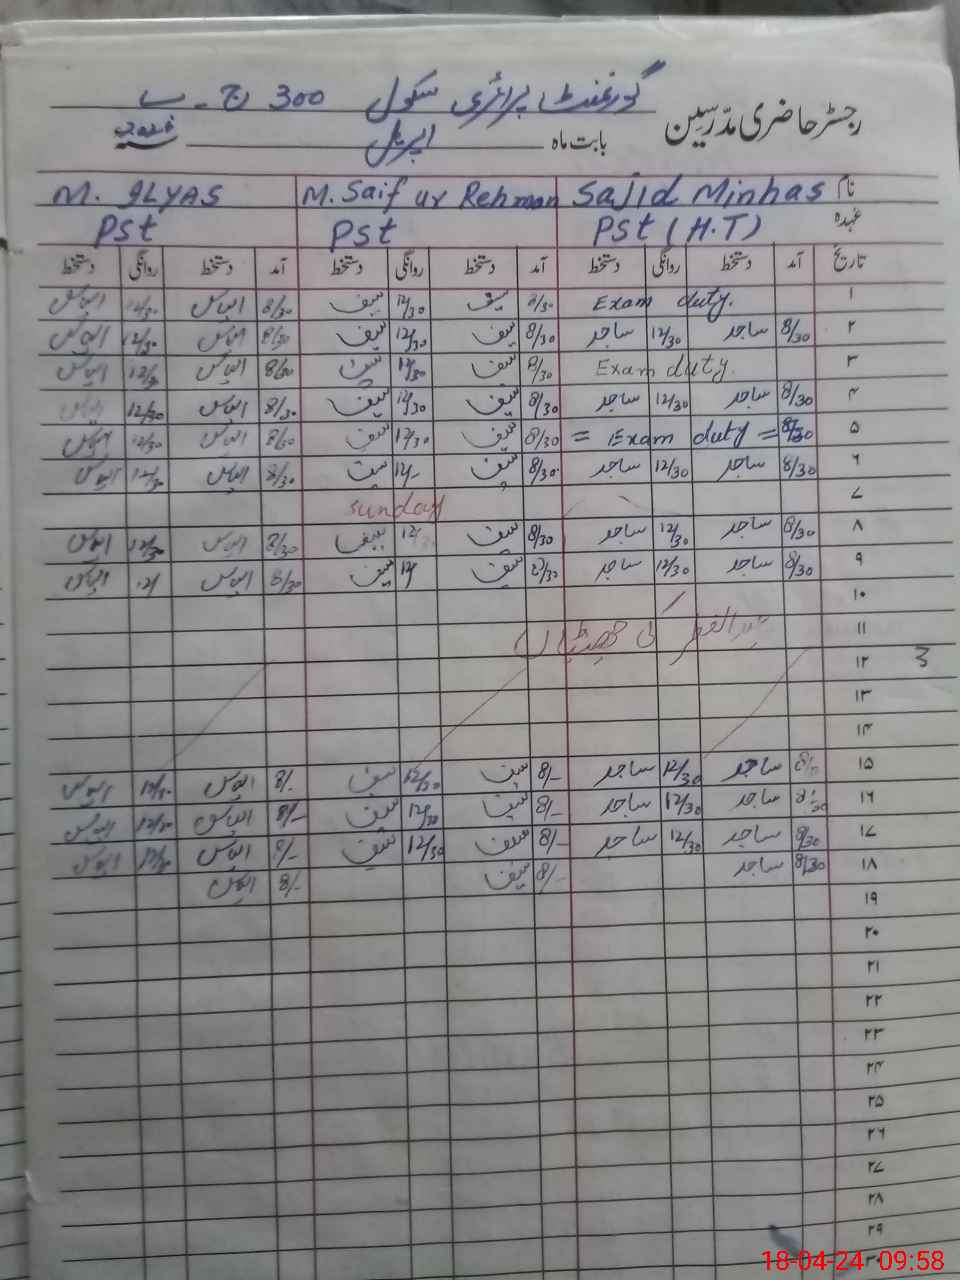 گورنمنٹ پرائمری سکول 300 ج۔ب
رجسٹر حاضری مدّرسین
بابت ماہ اپریل 2024
نام Sajid Minhas M. Saif ur Rehman M. ILYAS
عہدہ PST (H.T) PST PST
تاریخ آمد دستخط روانگی دستخط آمد دستخط روانگی دستخط آمد دستخط روانگی دستخط
۱ Exam duty. 8/30 سیف 12/30 سیف 8/30 الیاس 12/30 الیاس
۲ 8/30 ساجد 12/30 ساجد 8/30 سیف 12/30 سیف 8/30 الیاس 12/30 الیاس
۳ Exam duty. 8/30 سیف 12/30 سیف 8/30 الیاس 12/30 الیاس
۴ 8/30 ساجد 12/30 ساجد 8/30 سیف 12/30 سیف 8/30 الیاس 12/30 الیاس
۵ 8/30 = Exam duty = 8/30 سیف 12/30 سیف 8/30 الیاس 12/30 الیاس
۶ 8/30 ساجد 12/30 ساجد 8/30 سیف 12/- سیف 8/30 الیاس 12/30 الیاس
۷ Sunday
۸ 8/30 ساجد 12/30 ساجد 8/30 سیف 12/ سیف 8/30 الیاس 12/30 الیاس
۹ 8/30 ساجد 12/30 ساجد 8/30 سیف 12/ سیف 8/30 الیاس 12/ الیاس
۱۰
۱۱ عیدالفطر کی چھٹیاں
۱۲ 3
۱۳
۱۴
۱۵ 8/30 ساجد 12/30 ساجد 8/- سیف 12/30 سیف 8/- الیاس 12/30 الیاس
۱۶ 8/30 ساجد 12/30 ساجد 8/- سیف 12/30 سیف 8/- الیاس 12/30 الیاس
۱۷ 8/30 ساجد 12/30 ساجد 8/- سیف 12/30 سیف 8/- الیاس 12/30 الیاس
۱۸ 8/30 ساجد 8/- سیف 8/- الیاس
۱۹
۲۰
۲۱
۲۲
۲۳
۲۴
۲۵
۲۶
۲۷
۲۸
۲۹
۳۰
18-04-24 09:58